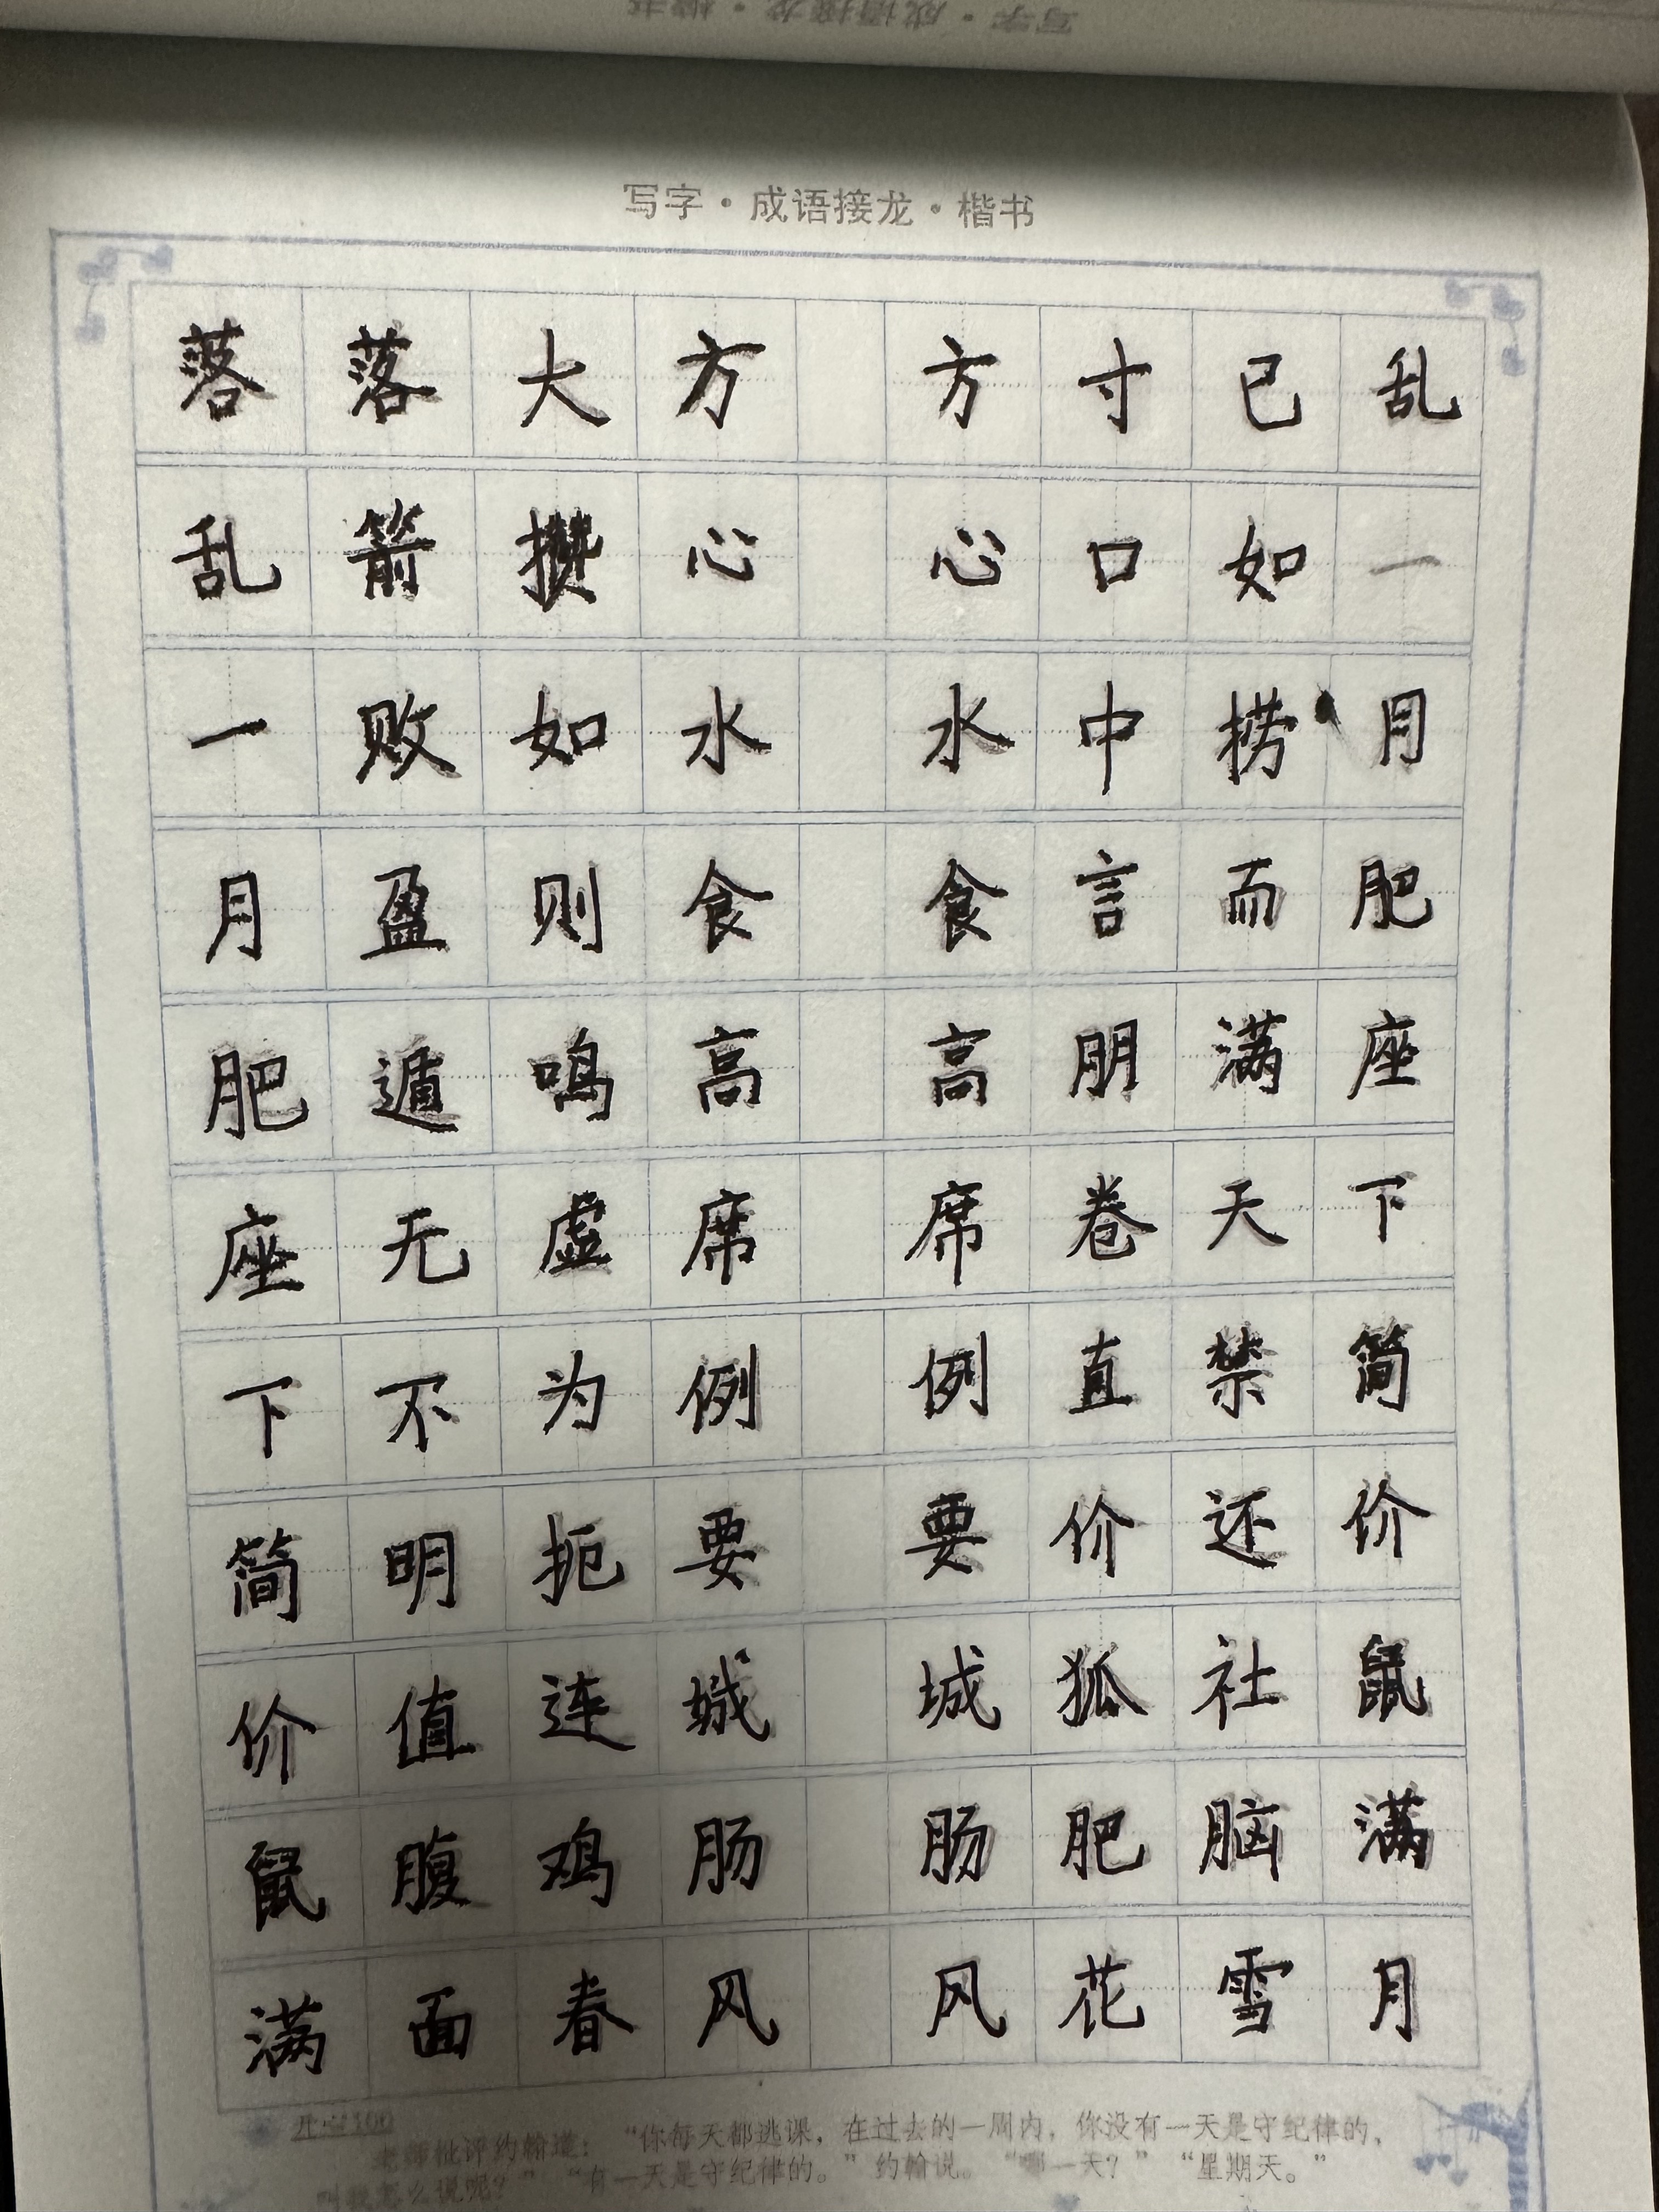 写字·成语接龙·楷书
写字·成语接龙·楷书
落落大方 方寸已乱
乱箭攒心 心口如一
一败如水 水中捞月
月盈则食 食言而肥
肥遁鸣高 高朋满座
座无虚席 席卷天下
下不为例 例直禁简
简明扼要 要价还价
价值连城 城狐社鼠
鼠腹鸡肠 肠肥脑满
满面春风 风花雪月
开心100
老师批评约翰道：“你每天都逃课，在过去的一周内，你没有一天是守纪律的，
叫我怎么说呢？”“有一天是守纪律的。”约翰说。“哪一天？”“星期天。”